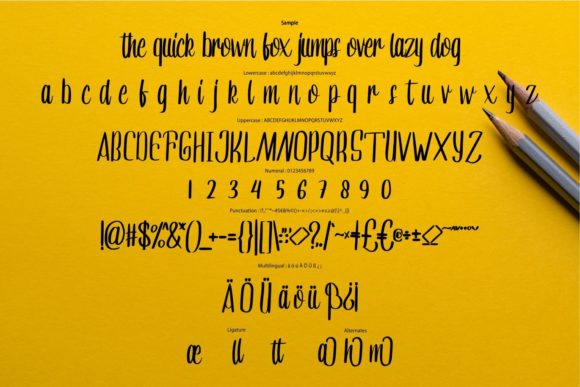 Sample
the quick brown fox jumps over lazy dog
Lowercase : abcdefghijklmnopqrstuvwxyz
a b c d e f g h i j k l m n o p q r s t u v w x y z
Uppercase : ABCDEFGHIJKLMNOPQRSTUVWXYZ
ABCDEFGHIJKLMNOPQRSTUVWXYZ
Numeral : 0123456789
1 2 3 4 5 6 7 8 9 0
Multilingual : ä ö ü Ä Ö Ü ß ¿ ¡
ÄÖÜäöüß¿¡
Ligature Alternates
æ ll tt a h m